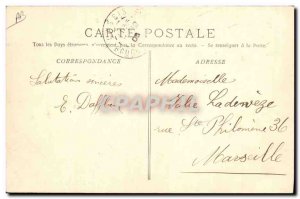 CARTE POSTALE
Tous les Pays étrangers n'acceptent pas la Correspondance au recto. - Se renseigner à la Poste.
CORRESPONDANCE
ADRESSE
Salutations sincères
E.
Mademoiselle
Ladevèze
rue Ste Philomène 36
Marseille